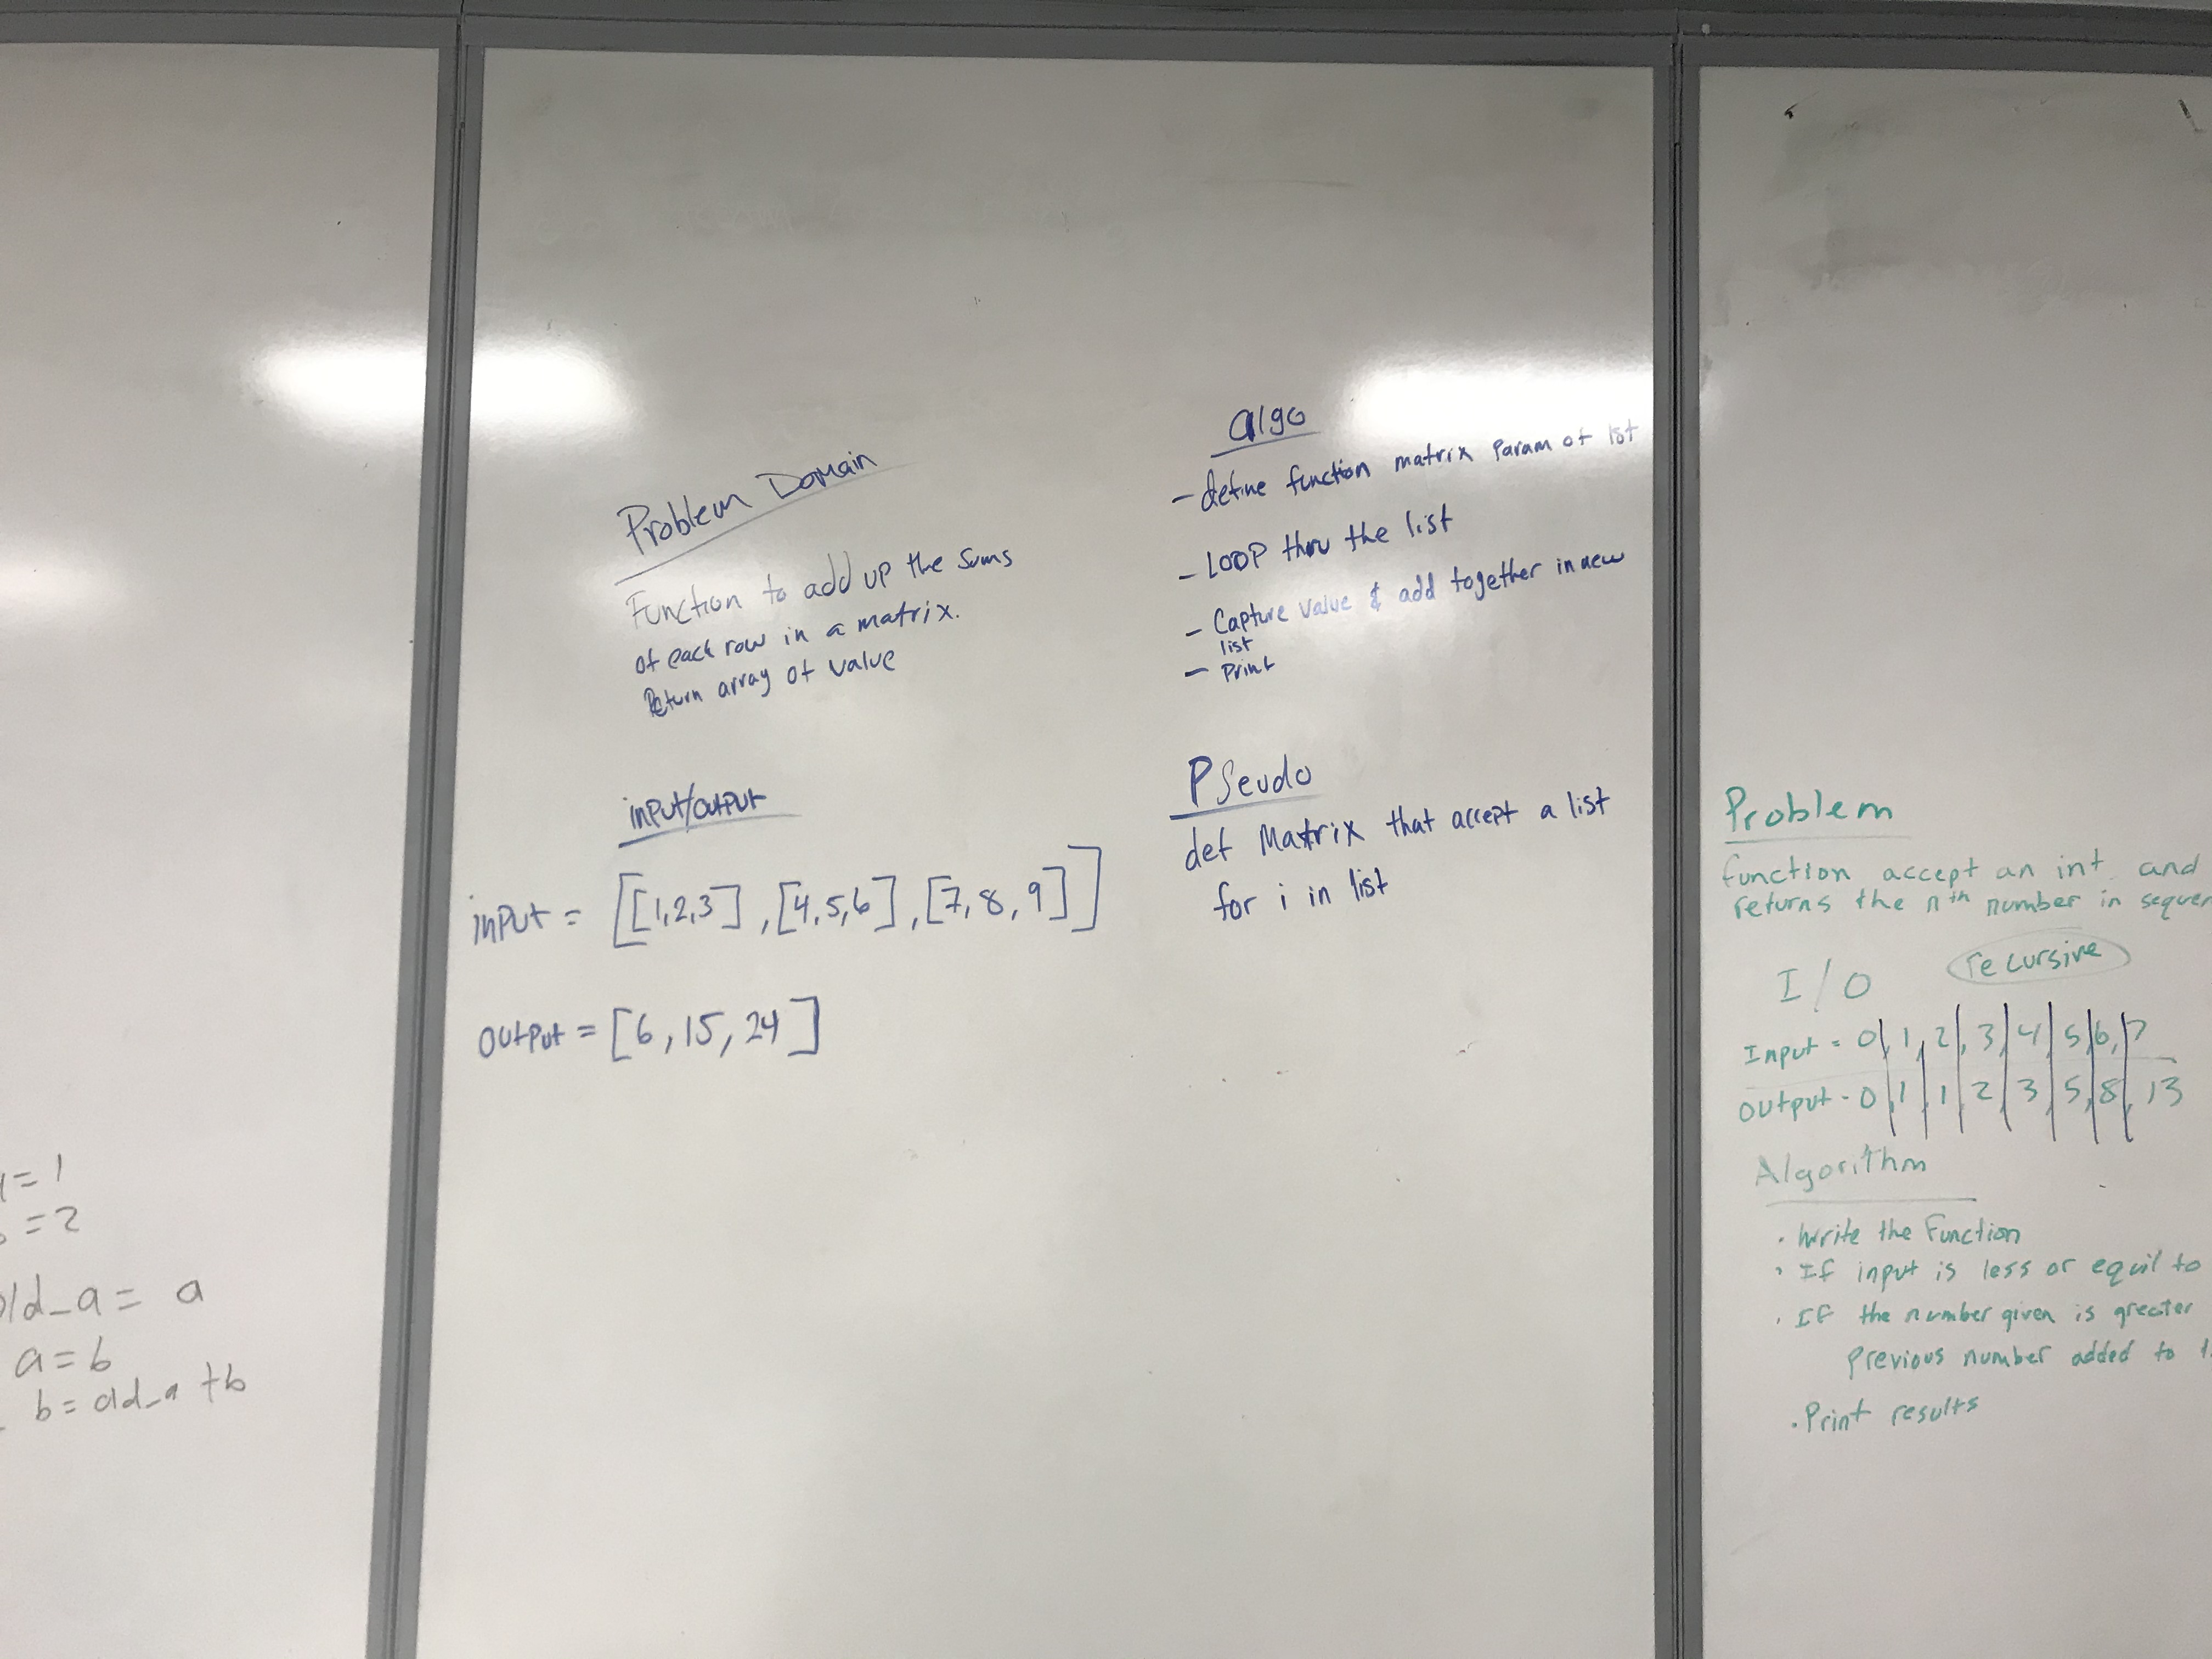 = 1
= 2
old_a = a
a = b
b = old_a + b
Problem Domain
Function to add up the sums
of each row in a matrix.
Return array of value
input/output
input = [[1,2,3],[4,5,6],[7,8,9]]
output = [6,15,24]
algo
- define function matrix param of lst
- Loop thru the list
- Capture value & add together in new
list
- Print
Pseudo
def Matrix that accept a list
for i in list
Problem
function accept an int and
returns the nth number in sequen
I/O recursive
Input = 0, 1, 2, 3, 4, 5, 6, 7
output - 0, 1, 1, 2, 3, 5, 8, 13
Algorithm
· Write the Function
· If input is less or equil to
· If the number given is greater
Previous number added to
· Print results